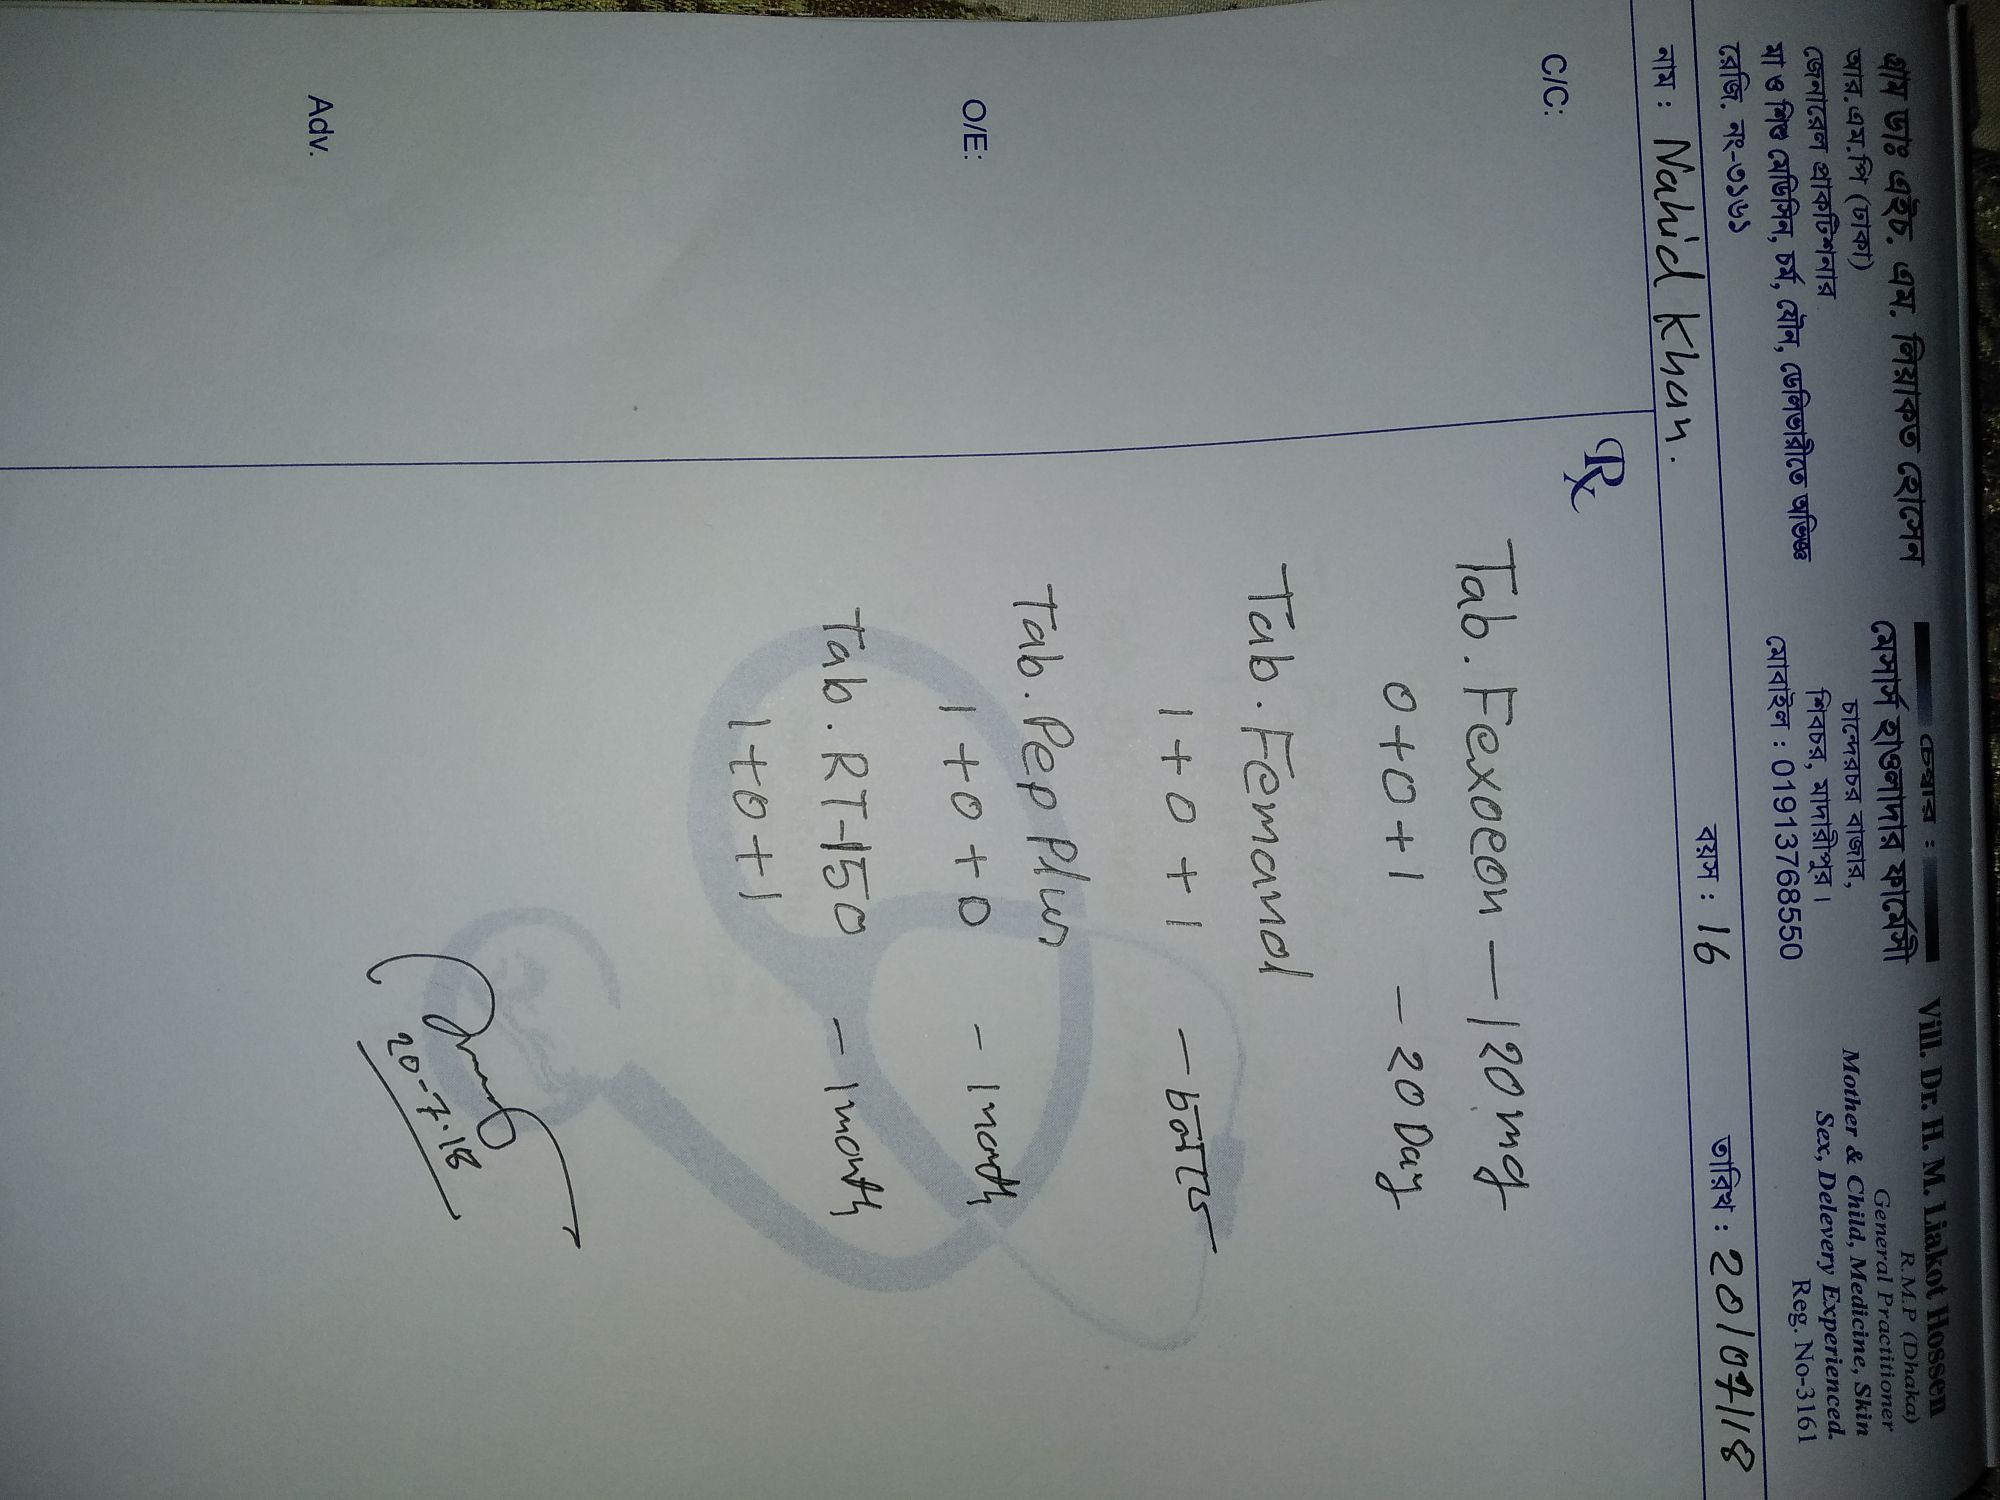 গ্রাম ডাঃ এইচ. এম. লিয়াকত হোসেন
আর.এম.পি (ঢাকা)
জেনারেল প্রাকটিশনার
মা ও শিশু মেডিসিন, চর্ম, যৌন, ডেলিভারীতে অভিজ্ঞ
রেজি. নং-৩১৬১
চেম্বার :
মেসার্স হাওলাদার ফার্মেসী
চান্দেরচর বাজার,
শিবচর, মাদারীপুর।
মোবাইল : 01913768550
Vill. Dr. H. M. Liakot Hossen
R.M.P (Dhaka)
General Practitioner
Mother & Child, Medicine, Skin
Sex, Delevery Experienced.
Reg. No-3161
নাম : Nahid Khan. বয়স : 16 তারিখ : 20/07/18
C/C:
O/E:
Adv.
Rx
Tab. Fexoeon — 120 mg
0+0+1 – 20 Day
Tab. Femanol
1+0+1 – চলবে
Tab. Pep Plus
1+0+0 – 1 month
Tab. RT-150
1+0+1 – 1 month
20-7-18